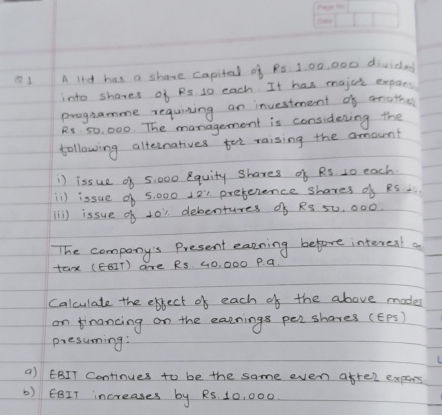 Page No
Date
Q1 A ltd has a share capital of Rs. 1,00,000 divided
into shares of Rs 10 each. It has major expans
programme requiring an investment of another
Rs. 50,000. The management is considering the
following alternatives for raising the amount
i) issue of 5,000 Equity shares of Rs. 10 each.
ii) issue of 5,000 12% preference shares of Rs. 10
iii) issue of 10% debentures of Rs 50,000.
The company's Present earning before interest
tax (EBIT) are Rs 40,000 p.a.
Calculate the effect of each of the above modes
on financing on the earnings per shares (EPS)
presuming:
a) EBIT Continues to be the same even after expans
b) EBIT increases by Rs. 10,000.